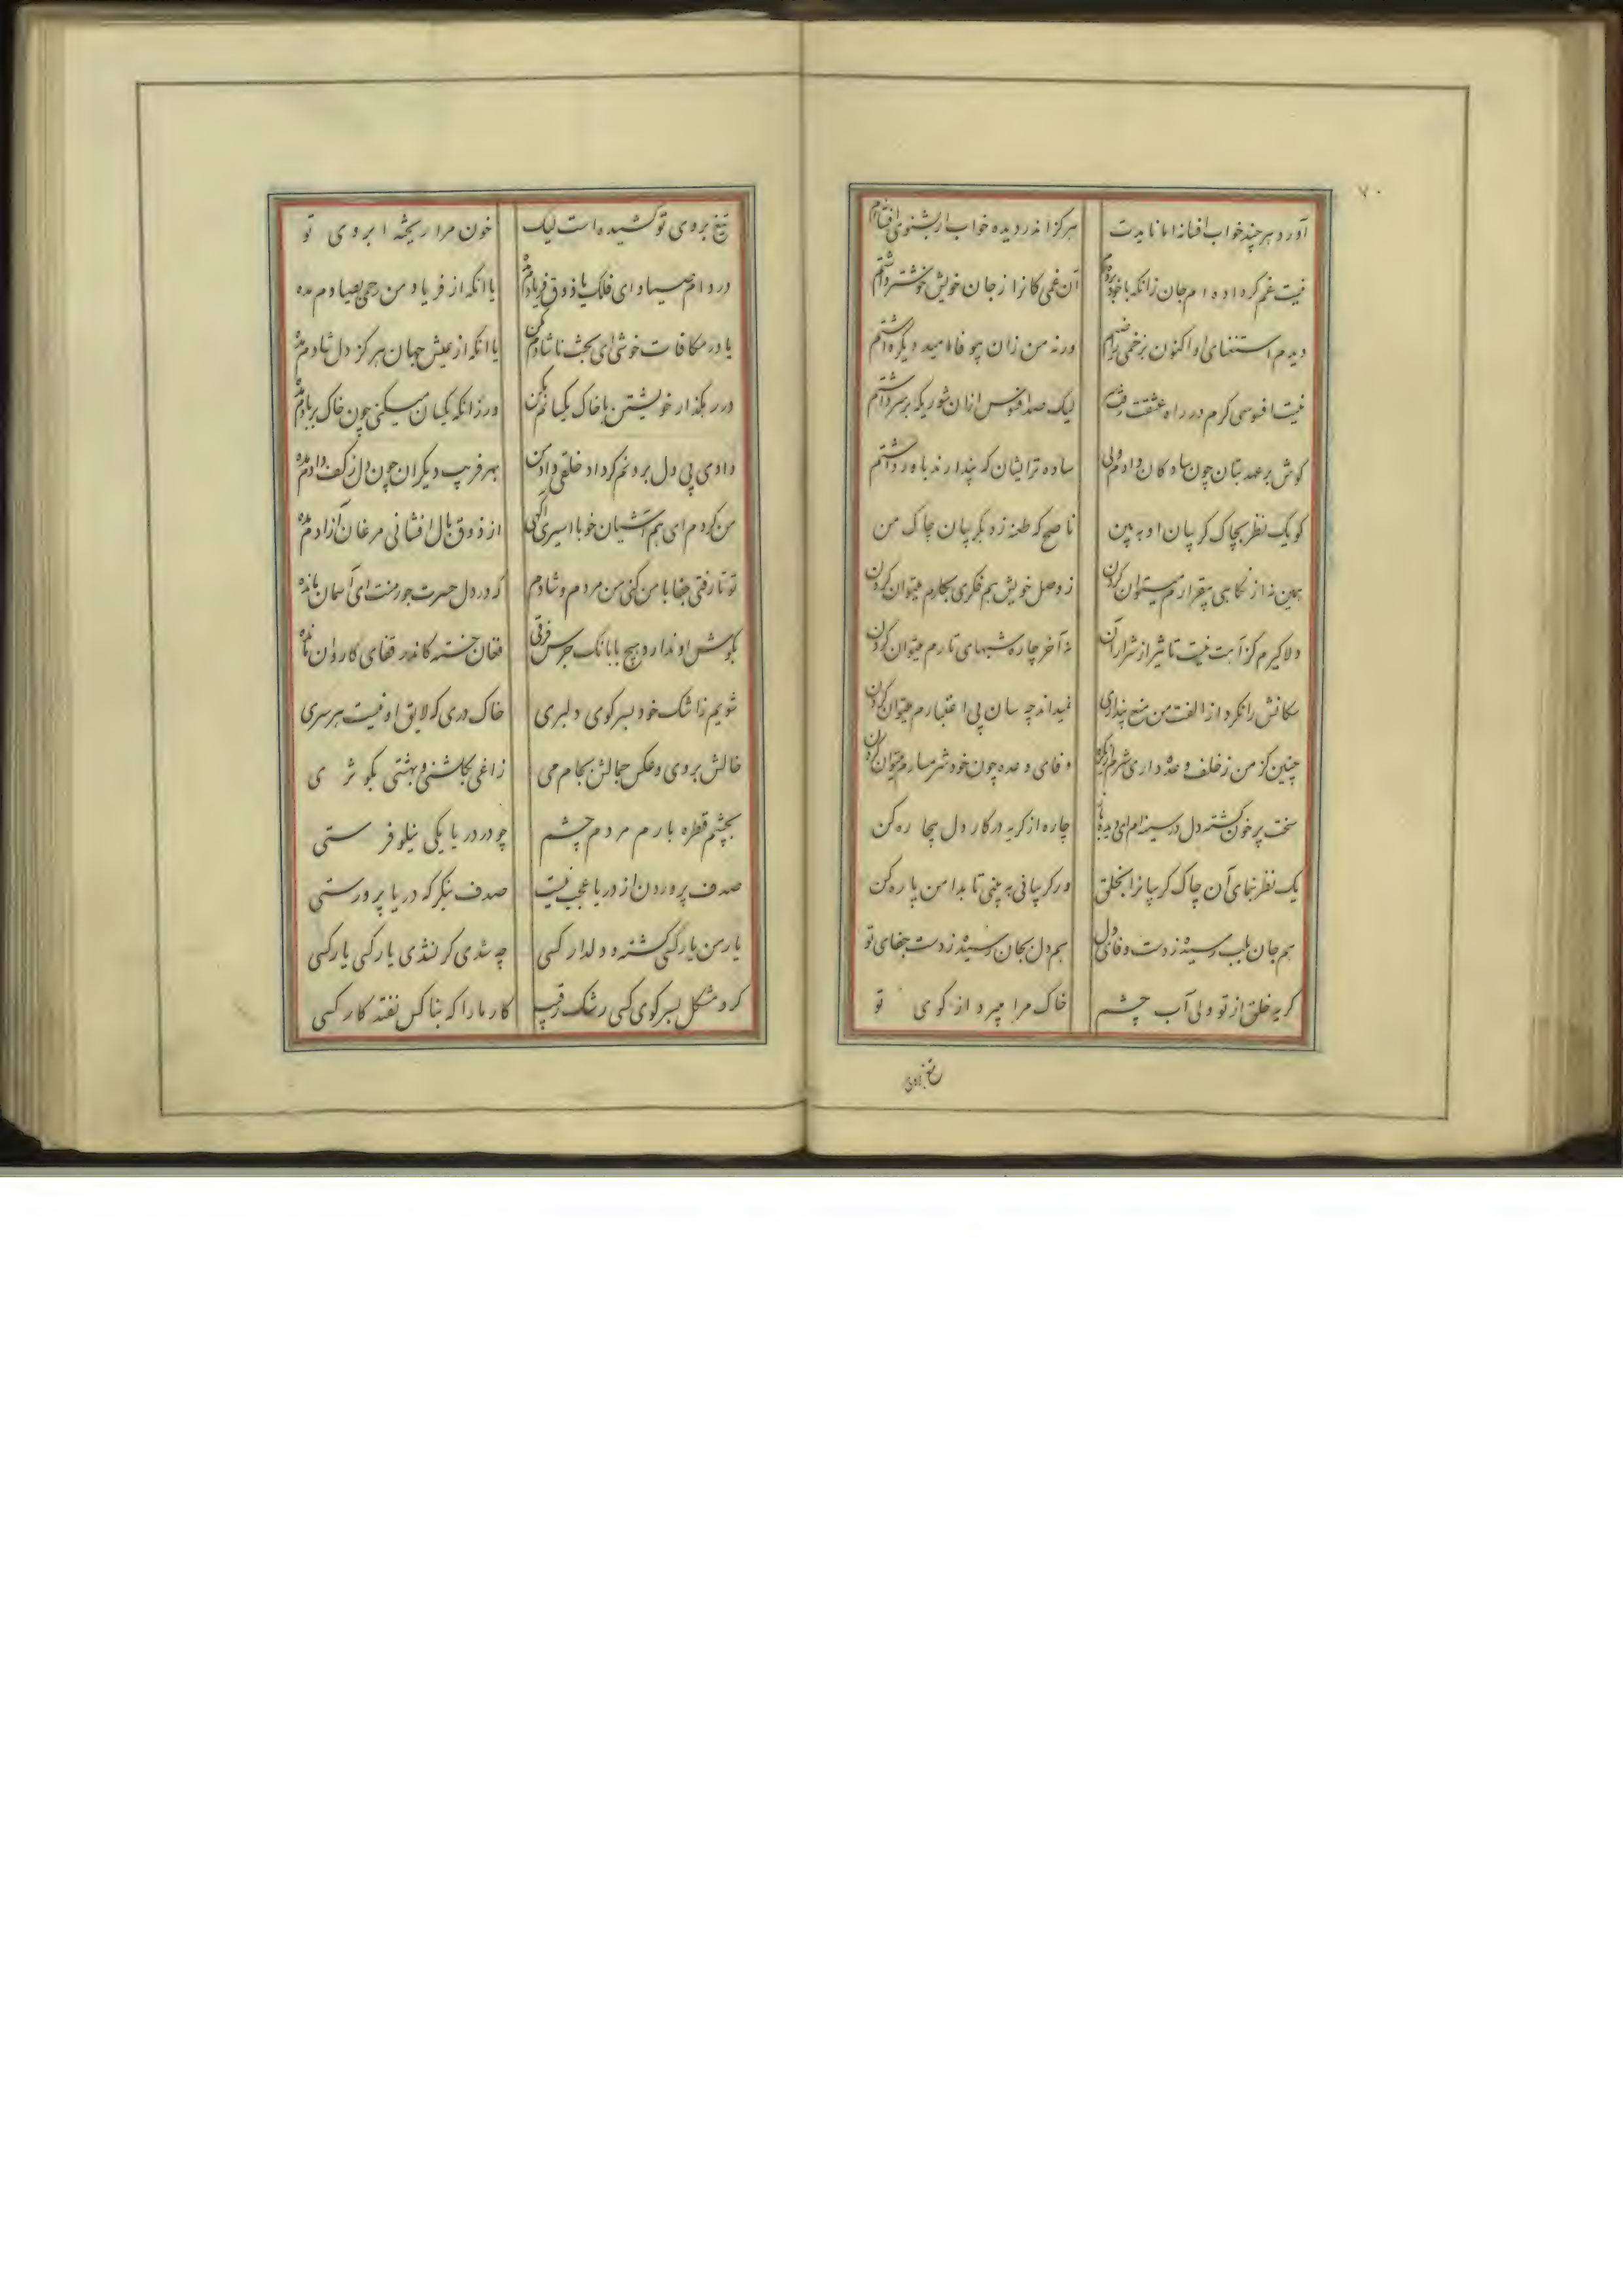 ۷۰
آورد هر چند خواب افسانه اما نایدت
هرگز اندر دیده خواب ار بشنوی افسانه‌ام
نیست غم گر داده‌ام جان زانکه با خود برده‌ام
آن غمی کانرا ز جان خویش خوشتر داشتم
دیدم استغنای او اکنون بزخمی راضیم
ورنه من زان بیوفا امید دیگر داشتم
نیست افسوسی گرم در راه عشقت
لیک صد افسوس ازان شوریکه بر سر داشتم
گوش بر عهد بتان چون سادگان دادم ولی
ساده تر ایشان که پندارند باور داشتم
کو یک نظر بچاک گریبان او ببین
ناصح که طعنه زد بگریبان چاک من
همین نه از نگاهی بیقرارم میتوان کردن
ز وصل خویش هم فکری بکارم میتوان کردن
دلا گیرم کز آهت نیست تاثیر از شرار آن
نه آخر چاره شبهای تارم میتوان کردن
سگانش را نکرد از الفت من منع پنداری
نمیداند چه سان بی اعتبارم میتوان کردن
چنین کز من ز خلف وعده داری شرم
وفای وعده چون خود شرمسارم میتوان کردن
سخت پر خون گشته دل در سینه‌ام ای دیده باز
چاره از گریه در کار دل بیچاره کن
یک نظر بنمای آن چاک گریبانرا بخلق
ور گریبانی نه بینی تا بدامن پاره کن
هم جان بلب رسیده ز دست وفای دل
هم دل بجان رسیده ز دست جفای تو
گریه خلق از تو ولی آب چشم
خاک مرا میبرد از کوی تو
تیغ بروی
تیغ بروی تو کشیده است لیک
خون مرا ریخته ابروی تو
در دام صیاد ای فلک یا ذوق فریادم مده
یا انکه از فریاد من رحمی بصیادم مده
یا در مکافات خوشی ای بخت ناشادم مکن
یا انکه از عیش جهان هرگز دل شادم مده
در رهگذار خویشتن با خاک یکسانم مکن
ور زانکه یکسان میکنی چون خاک بر بادم مده
دادی پی دل بردنم گر داد خلقی داد من
بهر فریب دیگران چون دل ز کف دادم مده
من کردم ای هم آشیان خو با اسیری
از ذوق بال افشانی مرغان آزادم مده
تو تا رفتی جفا با من کنی من مردم و شادم
که در دل حسرت جورمنت ای آسمان مانده
بگوش او ندارد هیچ با بانک جرس فرقی
فغان خسته کاندر قفای کاروان مانده
شویم ز اشک خود بسر کوی دلبری
خاک دری که لایق او نیست هر سری
خالش بروی و عکس جمالش بجام می
زاغی بگلشنی و بهشتی بکوثری
بچشم قطره بارم مردم چشم
چو در دریا یکی نیلوفرستی
صدف پروردن از دریا عجب نیست
صدف بنگر که دریا پرورستی
یار من یار کسی گشته و دلدار کسی
چه شدی گر نشدی یار کسی یار کسی
کرد مشکل بسر کوی کسی رشک رقیب
کار ما را که بناکس نفتد کار کسی